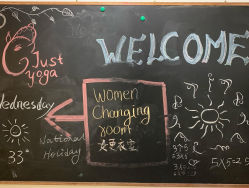 Just
yoga
WELCOME
Wednesday
33°
National
Holiday
Women
Changing
room
女更衣室
5×5=2